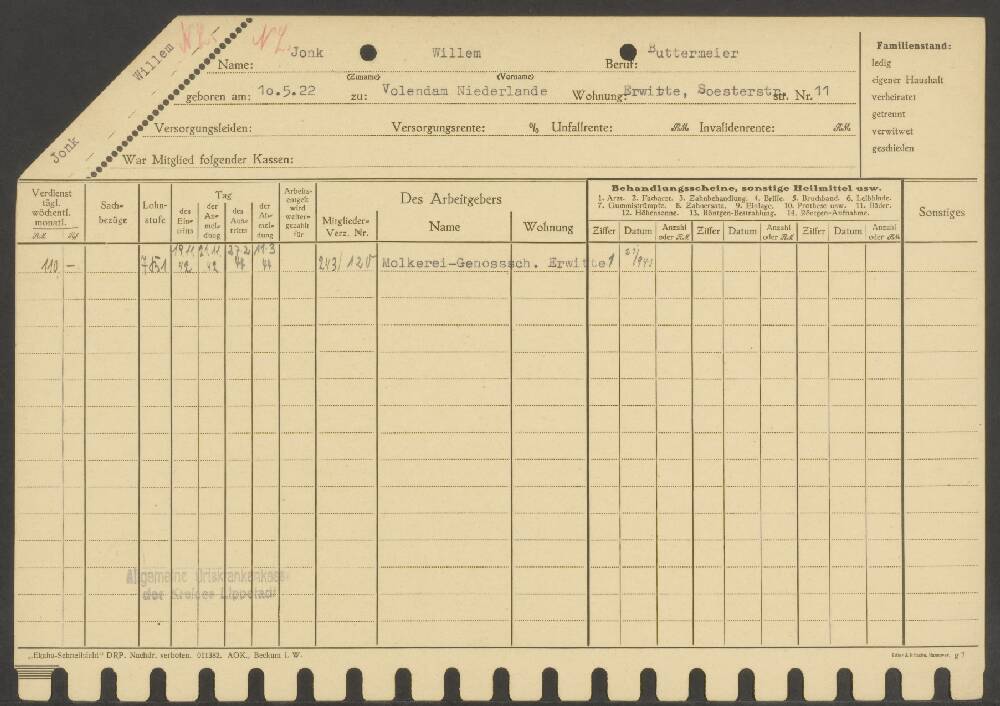 Willem
Jonk
NL. NL.
Name: Jonk Willem Beruf: Buttermeier
(Zuname) (Vorname)
geboren am: 10.5.22 zu: Volendam Niederlande Wohnung: Erwitte, Soesterstr. Str. Nr. 11
Versorgungsleiden: Versorgungsrente: % Unfallrente: RM. Invalidenrente: RM.
War Mitglied folgender Kassen:
Familienstand:
ledig
eigener Haushalt
verheiratet
getrennt
verwitwet
geschieden
Verdienst tägl. wöchentl. monatl. RM. Rpf.
Sachbezüge
Lohnstufe
Tag
des Eintritts
der Anmeldung
des Austritts
der Abmeldung
Arbeitsentgelt wird weitergezahlt für
Mitglieder-Verz. Nr.
Des Arbeitgebers
Name Wohnung
Behandlungsscheine, sonstige Heilmittel usw.
1. Arzt. 2. Facharzt. 3. Zahnbehandlung. 4. Brille. 5. Bruchband. 6. Leibbinde.
7. Gummistrümpfe. 8. Zahnersatz. 9. Einlage. 10. Prothese usw. 11. Bäder.
12. Höhensonne. 13. Röntgen-Bestrahlung. 14. Röntgen-Aufnahme.
Ziffer Datum Anzahl oder RM. Ziffer Datum Anzahl oder RM. Ziffer Datum Anzahl oder RM.
Sonstiges
110 — 19.11 42 21.11 42 27.2 44 11.3 44 243/120 Molkerei-Genosssch. Erwitte 1
Allgemeine Ortskrankenkasse
des Kreises Lippstadt
„Ekaha-Schreibficht" DRP. Nachdr. verboten. 011382. AOK., Beckum i. W.
g 7